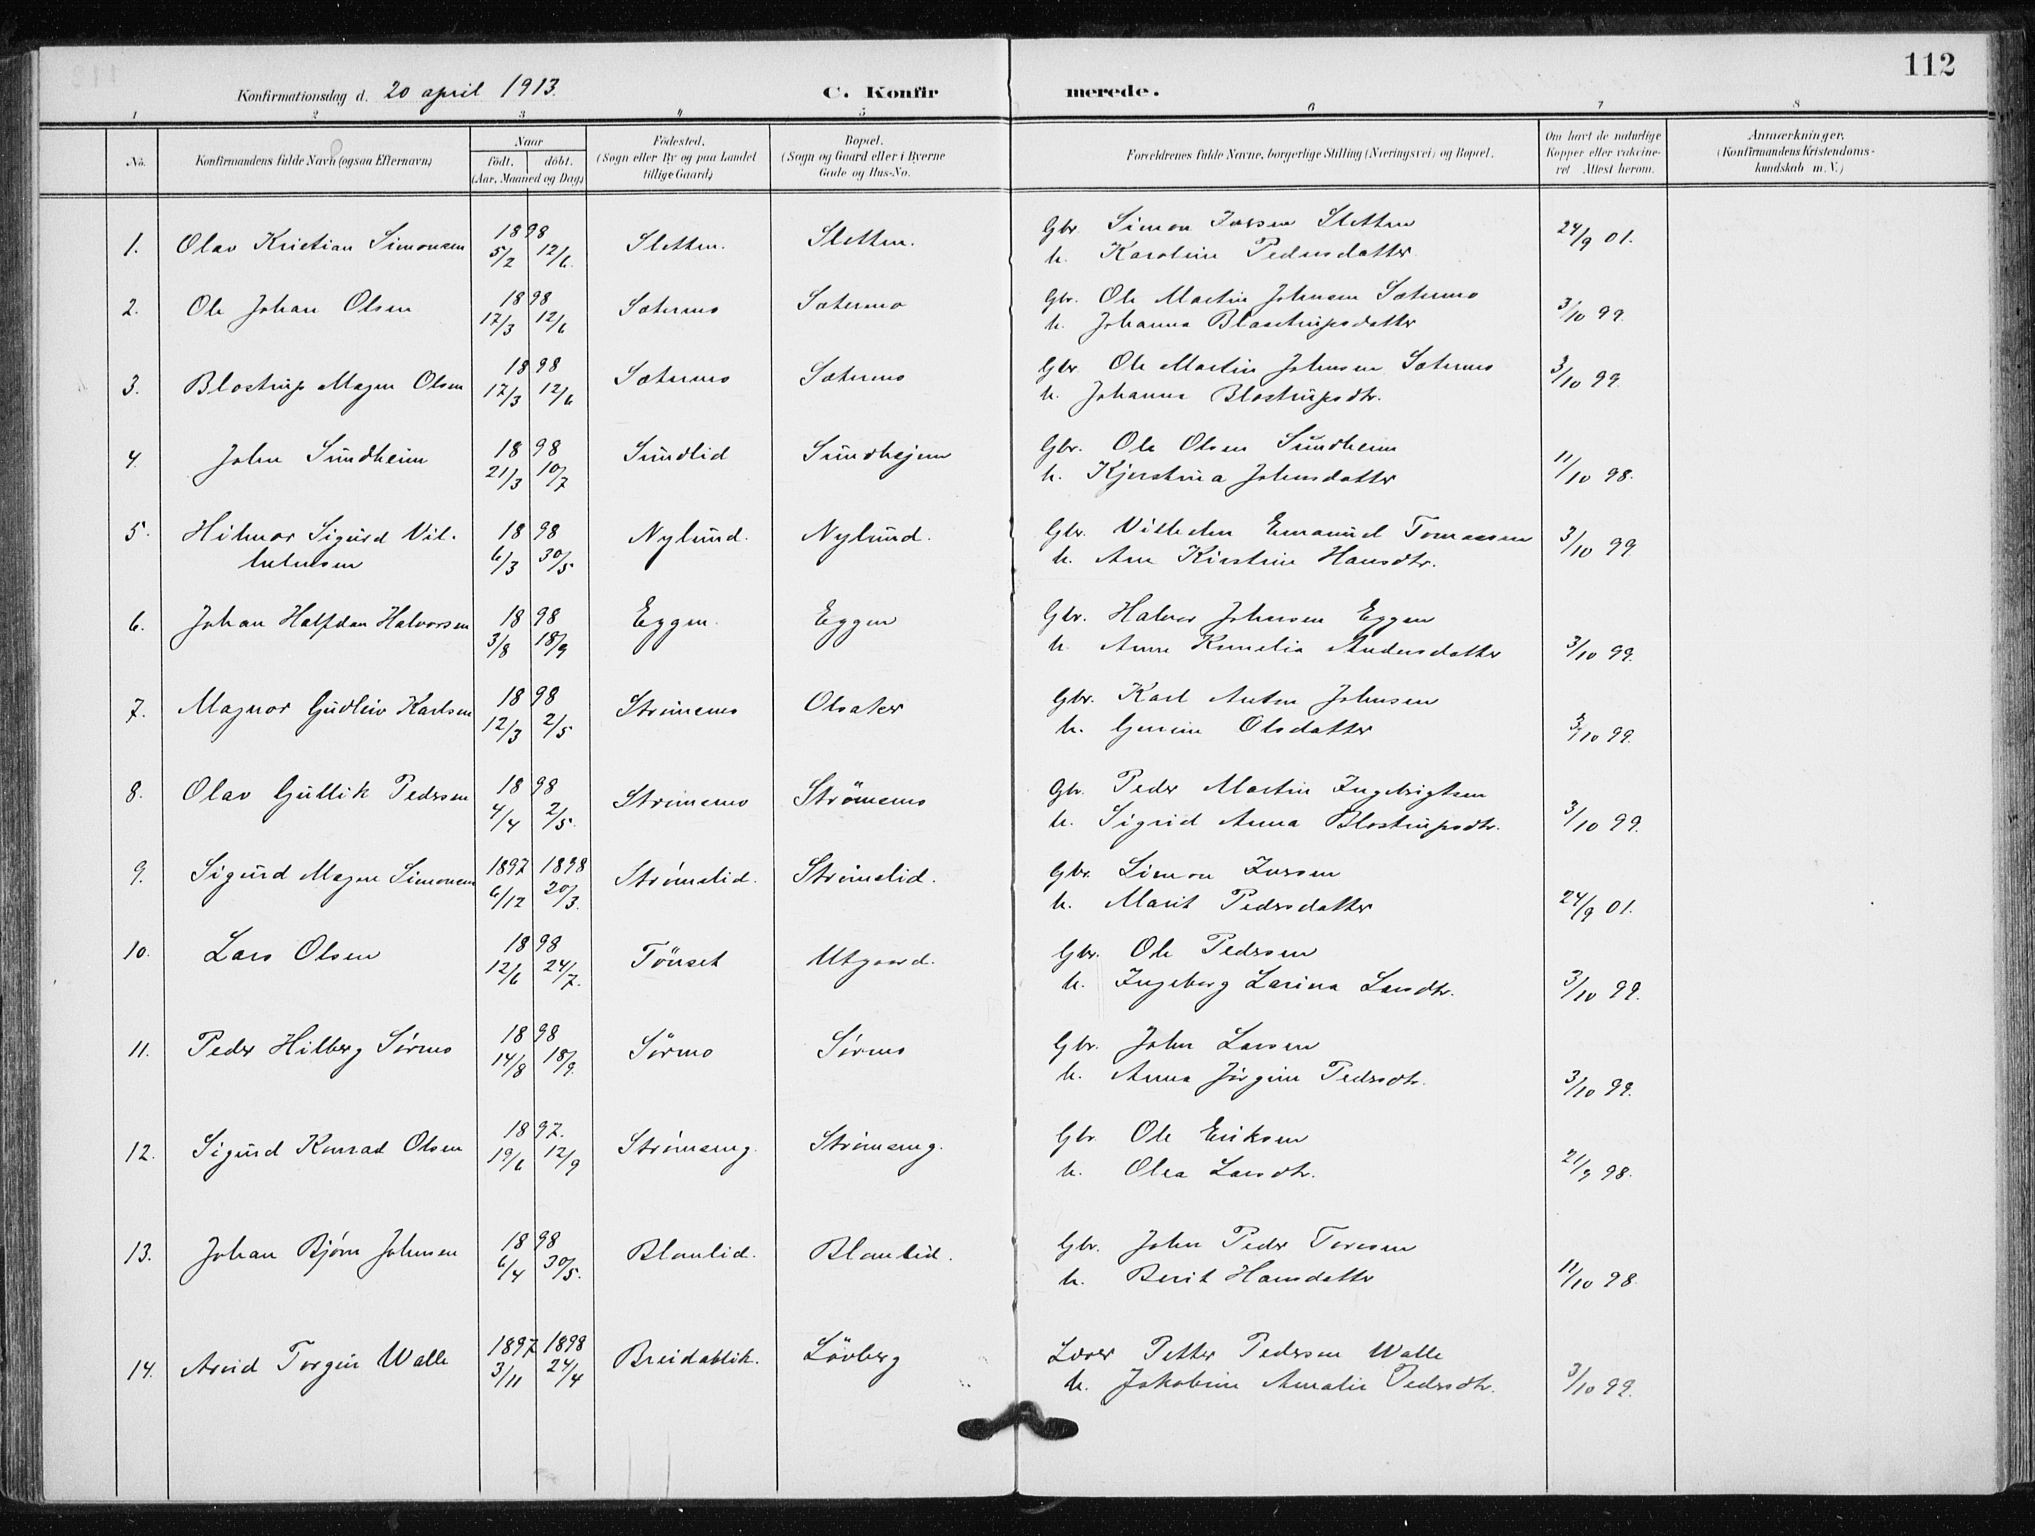 112
Konfirmationsdag d. 20 april 1913.
C. Konfirmerede.
1 2 3 4 5 6 7 8
No. Konfirmandens fulde Navn (ogsaa Efternavn) Naar födt. döbt. (Aar, Maaned og Dag) Födested. (Sogn eller By og paa Landet tillige Gaard) Bopæl. (Sogn og Gaard eller i Byerne Gade og Hus-No. Forældrenes fulde Navne, borgerlige Stilling (Næringsvei) og Bopæl. Om havt de naturlige Kopper eller vakcineret Attest herom. Anmærkninger. (Konfirmandens Kristendomskundskab m. V.)
1. Olav Kristian Simonsen 1898 5/2 12/6. Sletten. Sletten. Gbr. Simon Simon Sletten 24/9 01.
h. Karoline Pedersdatter
2. Ole Johan Olsen 1898 17/3 12/6 Sætermo Sætermo Gbr. Ole Martin Johnsen Sætermo 3/10 99.
h. Johanna Blastrupsdatter
3. Blostrup Magne Olsen 1898 17/3 12/6 Sætermo Sætermo Gbr. Ole Martin Johnsen Sætermo 3/10 99.
h. Johanna Blostrupsdtr.
4. John Sundheim 1898 21/3 10/7 Sundlid Sundhejm Gbr. Ole Olsen Sundheim 11/10 98.
h. Kjerstina Johnsdatter
5. Hilmar Sigurd Vil- 1898 6/3 30/5 Nylund. Nylund. Gbr. Vilhelm Emanuel Tomassen 3/10 99.
helmsen h. Ane Kirstine Hansdtr.
6. Johan Halfdan Halvorsen 1898 3/8 18/9 Eggen. Eggen Gbr. Halvor Johnsen Eggen
h. Anne Kornelia Andersdatter 3/10 99.
7. Magnor Gudleiv Karlsen 1898 12/3 2/5 Strömsmo Olsaker Gbr. Karl Anton Johnsen
h. Gurine Olsdatter 3/10 99.
8. Olav Gullik Pedersen 1898 4/4 2/5. Strömsmo Strömsmo Gbr. Peder Martin Ingebrigtsen
h. Sigrid Anna Blostrupsdtr. 3/10 99.
9. Sigurd Magne Simonsen 1897 1898 6/12 20/3. Strömslid. Strömslid. Gbr. Simon
h. Marit Pedersdatter 24/9 01.
10. Lars Olsen 1898 12/6 24/7. Tönset Utgaard. Gbr. Ole Pedersen
h. Ingeborg Larina Larsdtr. 3/10 99.
11. Peder Hilberg Sørmo 1898 14/8 18/9. Sørmo Sørmo Gbr. John Larsen
h. Anna Jörgine Pedersdtr. 3/10 99.
12. Sigurd Konrad Olsen 1897. 19/6 12/9 Strömseng. Strömseng. Gbr. Ole Eriksen
h. Olea Larsdtr. 21/9 98.
13. Johan Bjørn Johnsen 1898 6/4 30/5. Blomlid. Blomlid. Gbr. John Peder Toresen
h. Berit Hansdatter 11/10 98
14. Arvid Torgeir Walle 1897 1898 3/11 24/4 Breidablik. Lövberg Lærer Petter Pedersen Walle
h. Jakobine Amalie Pedersdtr. 3/10 99.